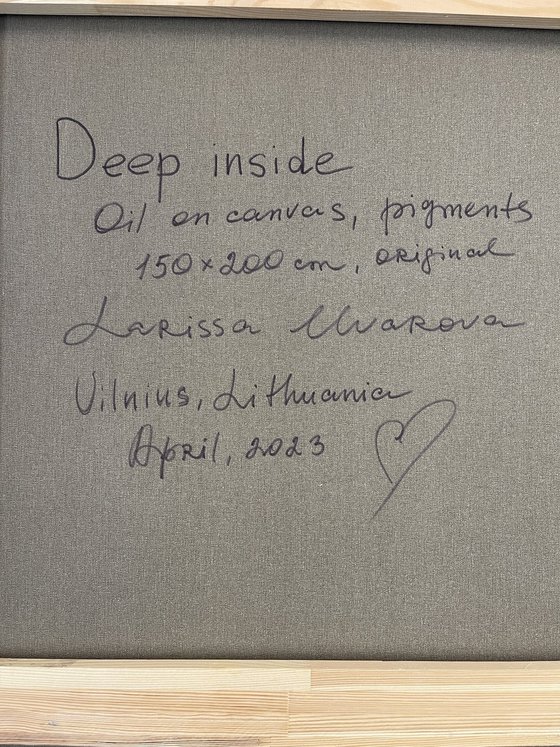 Deep inside
Oil on canvas, pigments
150×200 cm, original
Larissa Uvarova
Vilnius, Lithuania
April, 2023